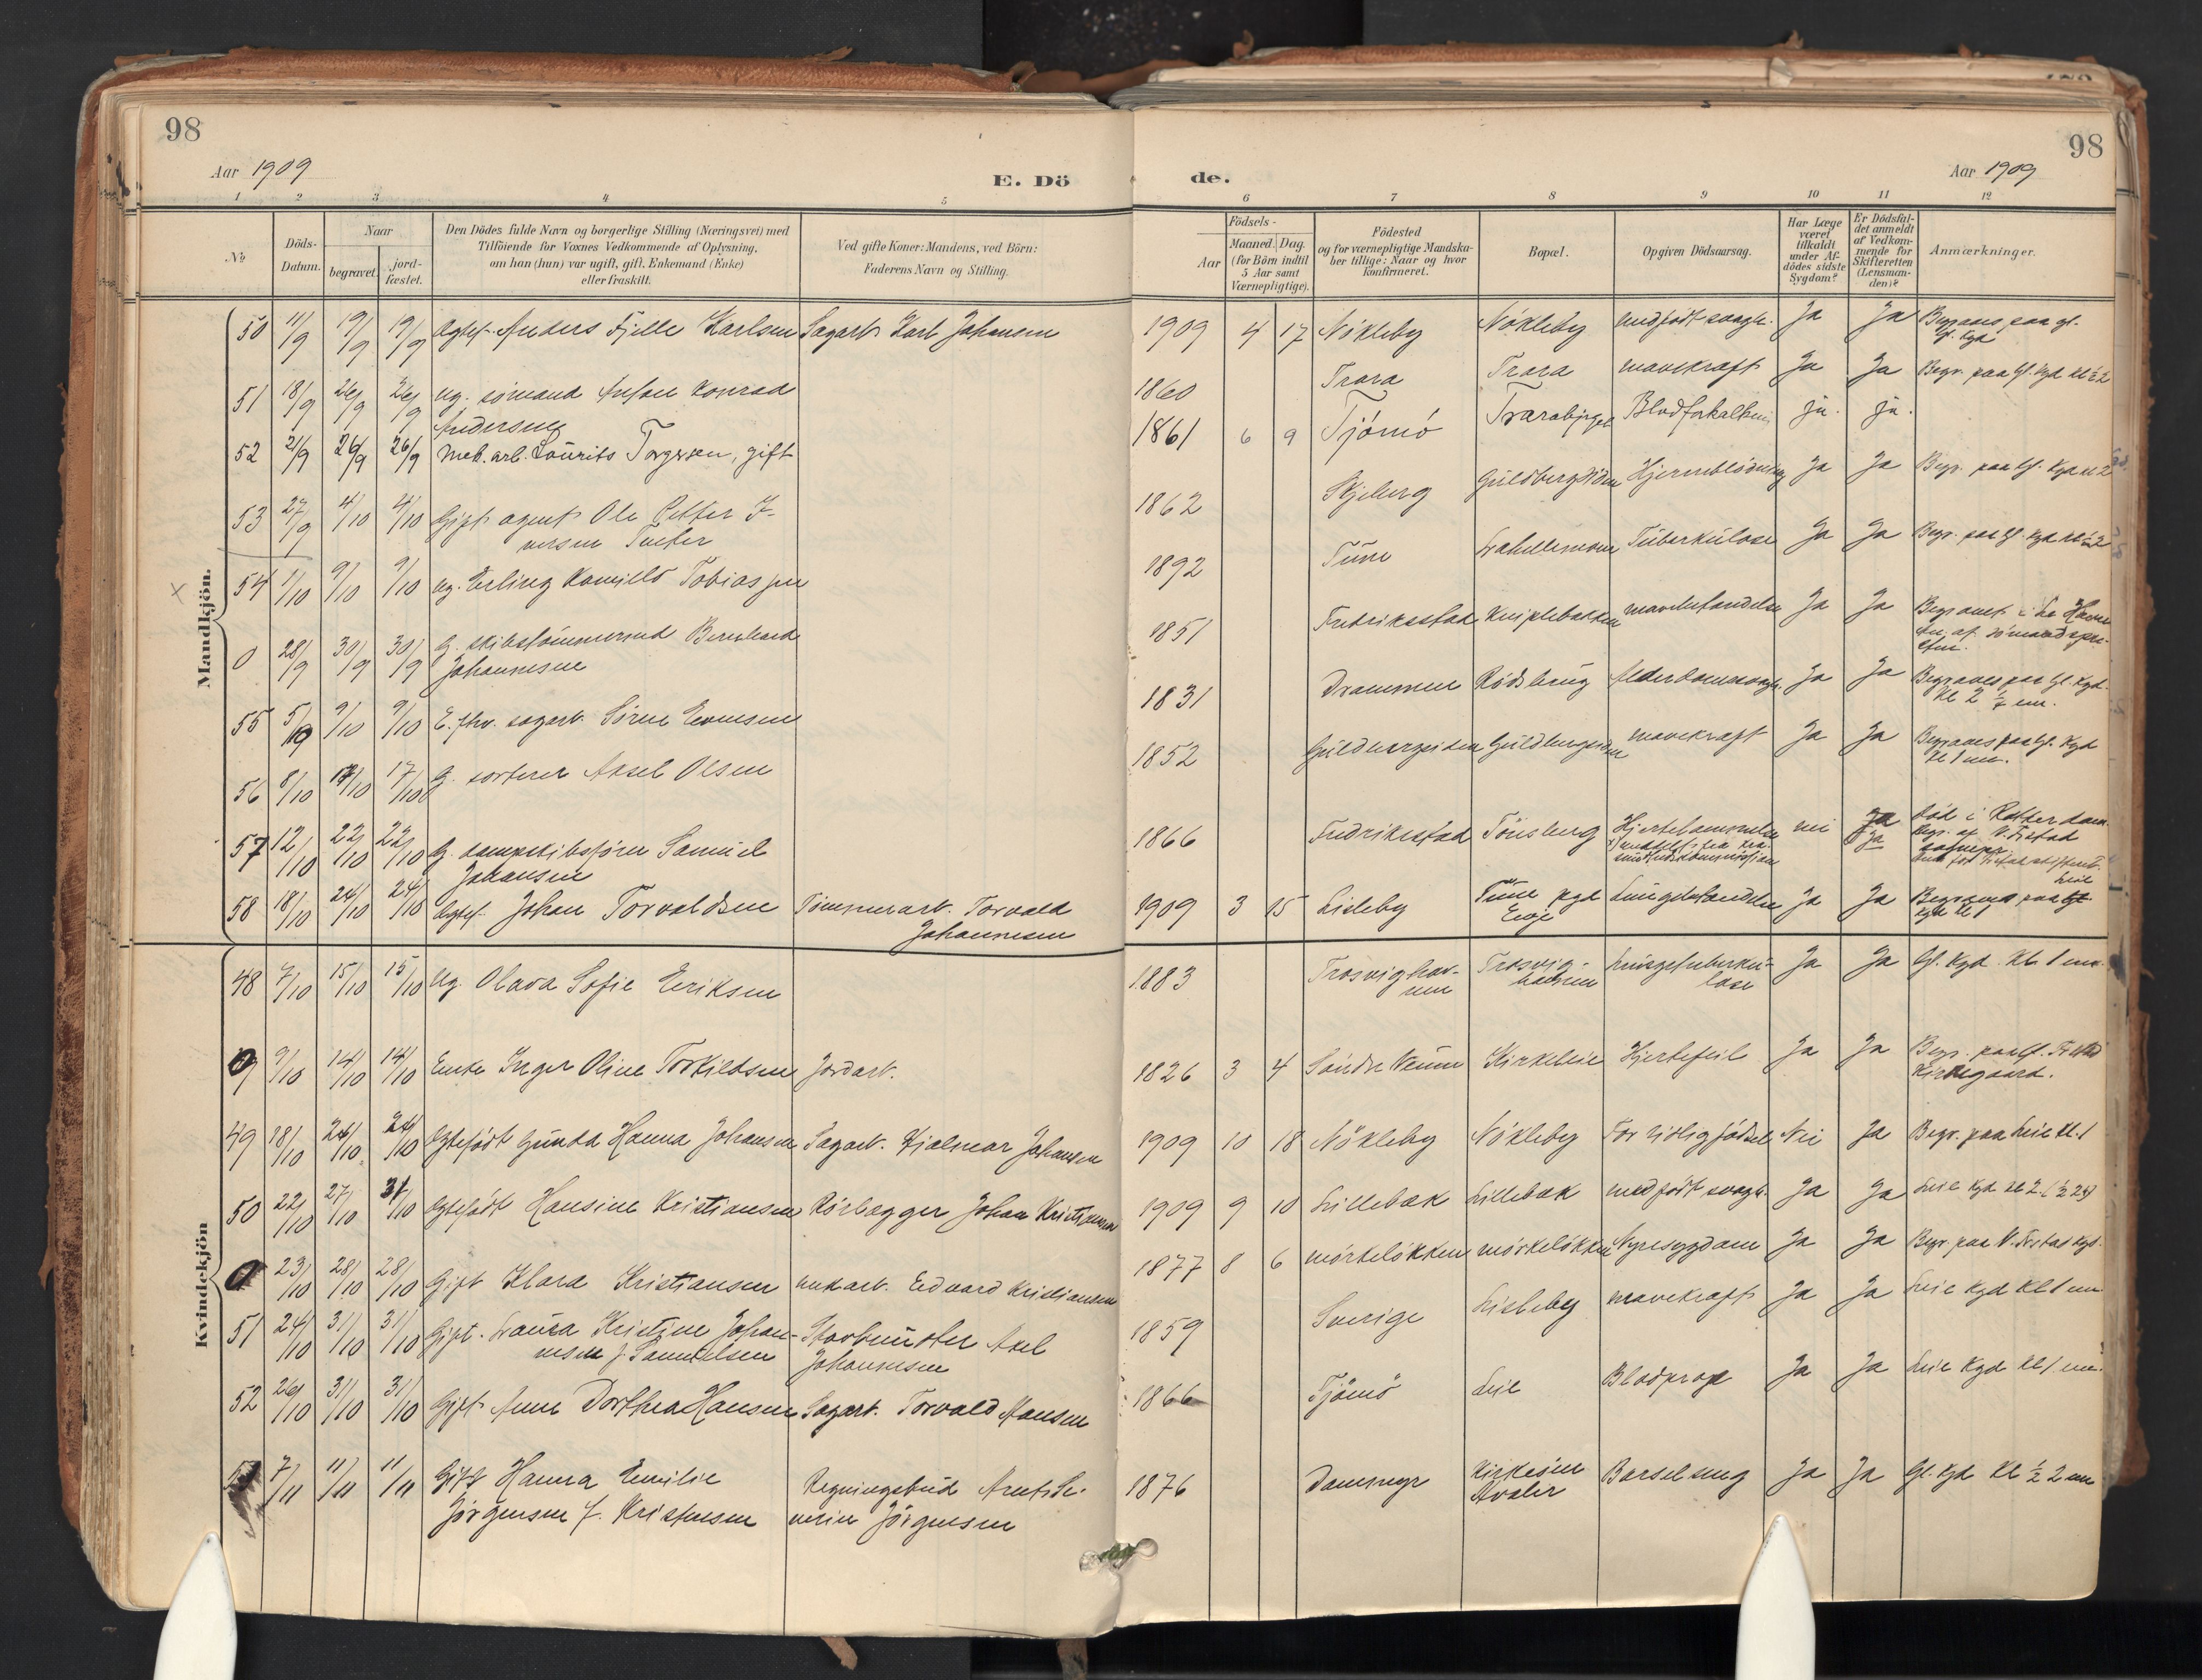 98
Aar 1909
E. Dö
1 2 3 4 5
№
Döds-
Datum.
Naar
begravet.
jord-
fæstet.
Den Dödes fulde Navn og borgerlige Stilling (Næringsvei) med
Tilföiende for Voxnes Vedkommende af Oplysning,
om han (hun) var ugift, gift, Enkemand (Enke)
eller fraskilt.
Ved gifte Koner: Mandens, ved Börn:
Faderens Navn og Stilling.
Mandkjön.
50 11/9 19/9 19/9 Ægtef. Anders Fjelle Karlsen Sagarb. Karl Johansen
51 18/9 26/9 26/9 ug. sömand Anton Konrad
Andersen
52 21/9 26/9 26/9 Mek. arb. Lauritz Torgersen, gift
53 27/9 4/10 4/10 Gift agent Ole Petter I-
versen Tveter
54 1/10 9/10 9/10 ug. Erling Kamillo Tobiassen
0 28/9 30/9 30/9 G. skibstömmermd Bernhard
Johannesen
55 5/10 9/10 9/10 E. fhv. sagarb. Sören Evensen
56 8/10 17/10 17/10 G. sorterer Aksel Olsen
57 12/10 22/10 22/10 G. dampskibsförer Samuel
Johansen
58 18/10 24/10 24/10 Ægtef. Johan Torvaldsen Tömmerarb. Torvald
Johannesen
Kvindekjön
48 7/10 15/10 15/10 Ug. Olava Sofie Eriksen
0 9/10 14/10 14/10 Enke Inger Oline Torkildsen Jordarb.
49 18/10 24/10 24/10 Ægtefödt Gunda Hanna Johansen Sagarb. Hjalmar Johansen
50 22/10 27/10 31/10 Ægtefödt Hansine Kristiansen Rörlægger Johan Kristiansen
0 23/10 28/10 28/10 Gift Klara Kristiansen mekarb. Edvard Kristiansen
51 24/10 31/10 31/10 Gift. Laura Kristine Johan-
nesen f. Samuelsen Axel
Johannesen
52 26/10 31/10 31/10 Gift Anne Dorthea Hansen Sagarb. Torvald Hansen
7/11 11/11 11/11 Gift Hanna Emilie
Jörgensen f. Kristensen
Regningsbud
Jörgensen
98
de.
Aar 1909
6 7 8 9 10 11 12
Födsels-
Aar
Maaned. Dag.
(for Börn indtil
5 Aar samt
Værnepligtige).
Födested
og for værnepligtige Mandska-
ber tillige: Naar og hvor
konfirmeret.
Bopæl.
Opgiven Dödsaarsag.
Har Læge
været
tilkaldt
under Af-
dödes sidste
Sygdom?
Er Dödsfal-
det anmeldt
af Vedkom-
mende for
Skifteretten
(Lensman-
den)?
Anmærkninger.
1909 4 17 Nökleby Nökleby medfödt svagh. Ja Ja Begraves paa gl.
Gl. Kgd
1860 Trara Trara mavekræft Ja Ja Begr. paa Gl. Kgd kl ½ 2
1861 6 9 Tjömö Trarabjerget Blodforkalkning ja. ja.
1862 Skjeberg Guldbergsiden Hjerneblödning Ja Ja Begr. paa Gl. Kgd kl 2
1892 Tune Lahellemoen Tuberkulose Ja Ja Begr. paa Gl. Kgd kl ½ 2
1851 Fredriksstad Kniplebakken mavebetændelse Ja Ja Begravet i
af sömandspre-
sten.
1831 Drammen Rödsberg Alderdomssvagh. Ja Ja Begraves paa Gl. Kgd.
Kl 2 ½ em.
1852 Guldbergsiden Guldbergsiden mavekræft Ja Ja Begraves paa Gl. Kgd
Kl 1 em.
1866 Fredrikstad Tönsberg Hjertelammelse nei Ja
Ja
död i Rotterdam.
Begr. af V. Fr.stad
1909 3 15 Lisleby Tune pgd
Lungebetændelse Ja Ja Begraves paa Leie
Kgd kl 1
1883 Trosvighav-
nen Trosvig-
havnen Lungetuberku-
lose Ja Ja Gl. Kgd. Kl. 1 em.
1826 3 4 Söndre Væum Kirkeleie Hjertefeil Ja Ja Begr. paa V. Fr.stad
Kirkegaard.
1909 10 18 Nökleby Nökleby For tidlig födsel Nei Ja Begr. paa Leie kl. 1
1909 9 10 Lillebæk Lillebæk medfödt svagh. Ja Ja Leie Kgd kl 2
1877 8 6 mörkelökken mörkelökken Nyresygdom Ja Ja Begr. paa V. Fr.stad Kgd.
1859 Sverige Lisleby mavekræft Ja Ja Leie Kgd Kl 1 em
1866 Tjömö Leie Blodprop Ja Ja Leie Kgd Kl 1 em.
1876 Dammyr Kirköen
Hvaler Barselseng Ja Ja Gl. Kgd Kl ½ 2 em